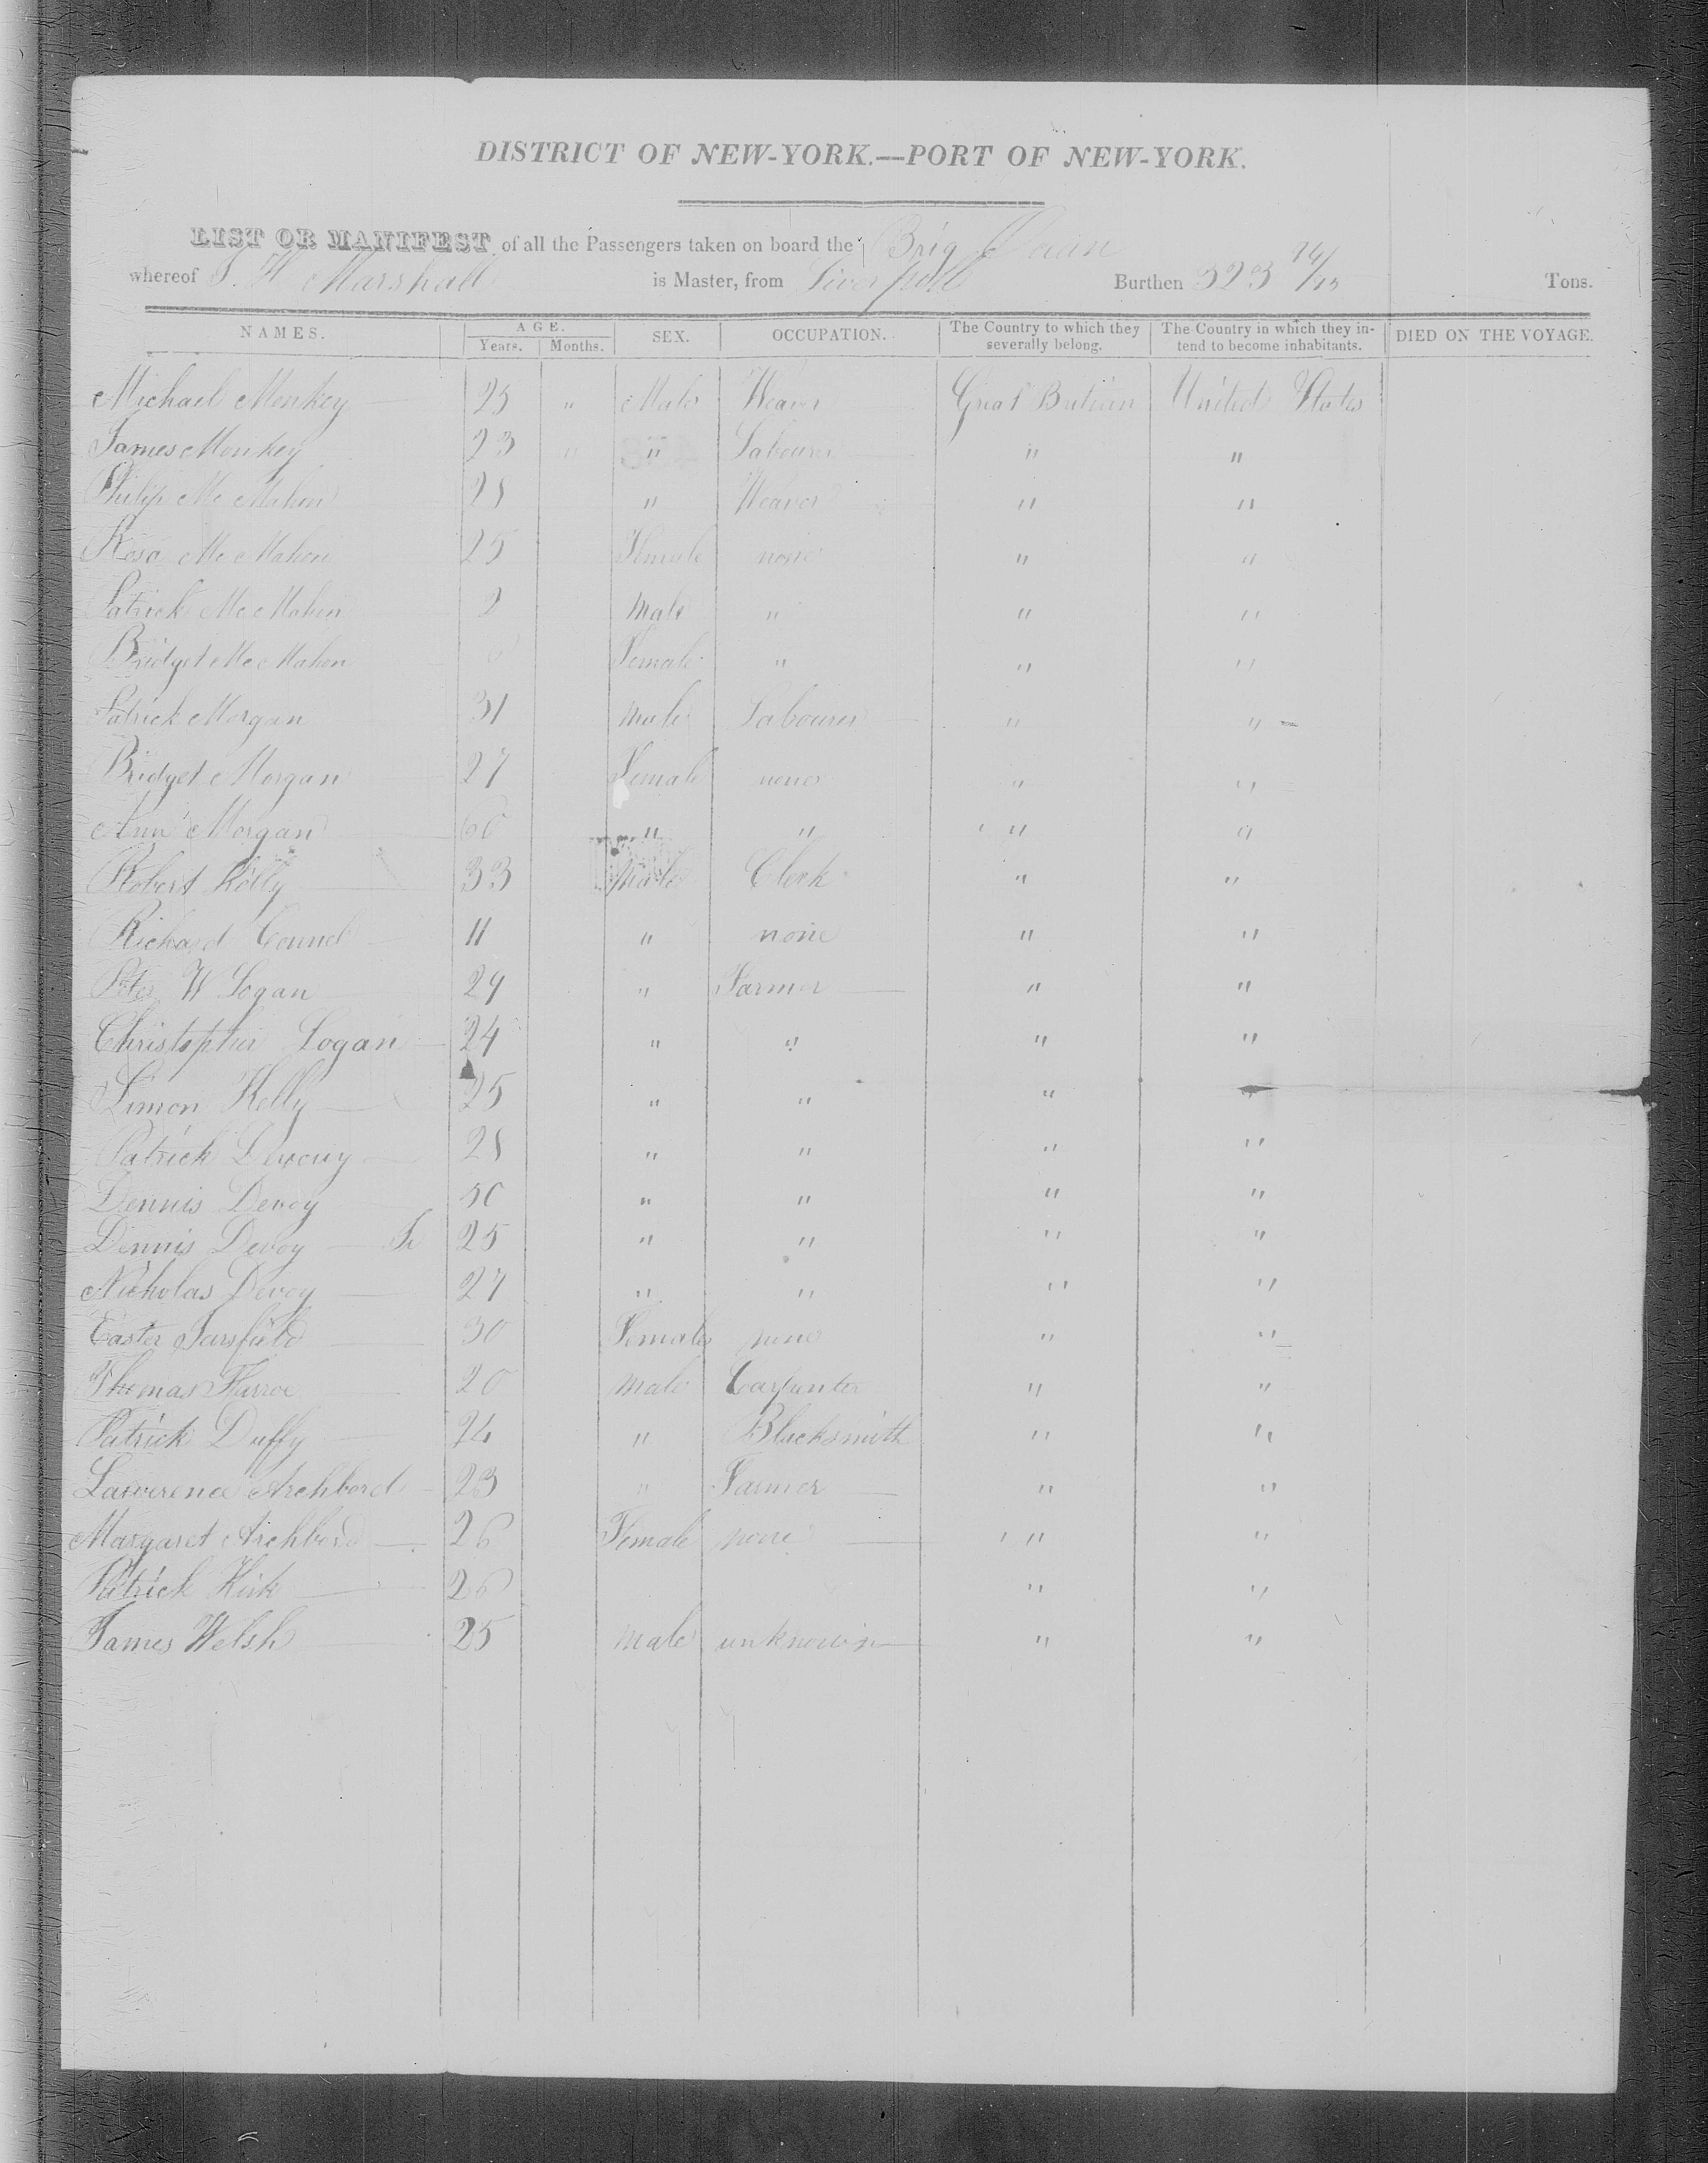 DISTRICT OF NEW-YORK.—PORT OF NEW-YORK.
LIST OR MANIFEST of all the Passengers taken on board the Brig
whereof Marshall is Master, from Liverpool Burthen 323 Tons.
NAMES. AGE. Years. Months. SEX. OCCUPATION. The Country to which they severally belong. The Country in which they intend to become inhabitants. DIED ON THE VOYAGE.
Michael Monkey 25 " Male Weaver Great Britian United States
James Monkey 23 " " Labourer " "
Philip Mc Mahon 28 " Weaver " "
Rosa Mc Mahon 25 Female none " "
Patrick Mc Mahon 2 Male " " "
Bridget Mc Mahon Female " " "
Patrick Morgan 31 Male Labourer " "
Bridget Morgan 27 Female none " "
Ann Morgan " " " "
Robert 33 Male Clerk " "
Richard 11 " none " "
Peter W Logan 29 " Farmer " "
Christopher Logan 24 " " " "
Simon Kelly 25 " " " "
Patrick 28 " " " "
Dennis Devoy 50 " " " "
Dennis Devoy Jr 25 " " " "
Nicholas Devoy 27 " " " "
Easter Sarsfield 30 Female none " "
Thomas 20 Male Carpenter " "
Patrick Duffy 24 " Blacksmith " "
Lawerence Archbord 23 " Farmer " "
Margaret Archbord 26 Female none " "
Patrick Kirk 26 " "
James Welsh 25 Male unknown " "